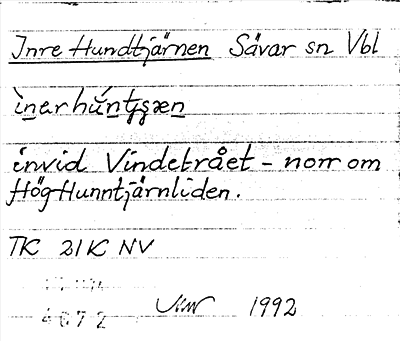 Inre Hundtjärnen Sävar sn Vbl
inerhúntjæṇ
invid Vindetrået - norr om
Hög-Hunntjärnliden.
TK 21K NV
4672
1992